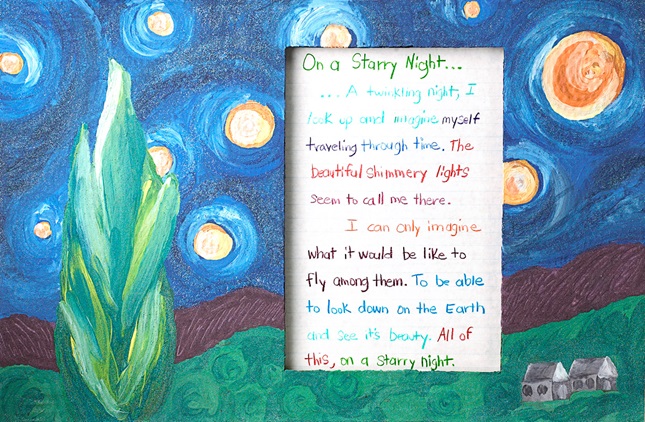 On a Starry Night...
... A twinkling night, I
look up and imagine myself
traveling through time. The
beautiful shimmery lights
seem to call me there.
I can only imagine
what it would be like to
fly among them. To be able
to look down on the Earth
and see it's beauty. All of
this, on a starry night.